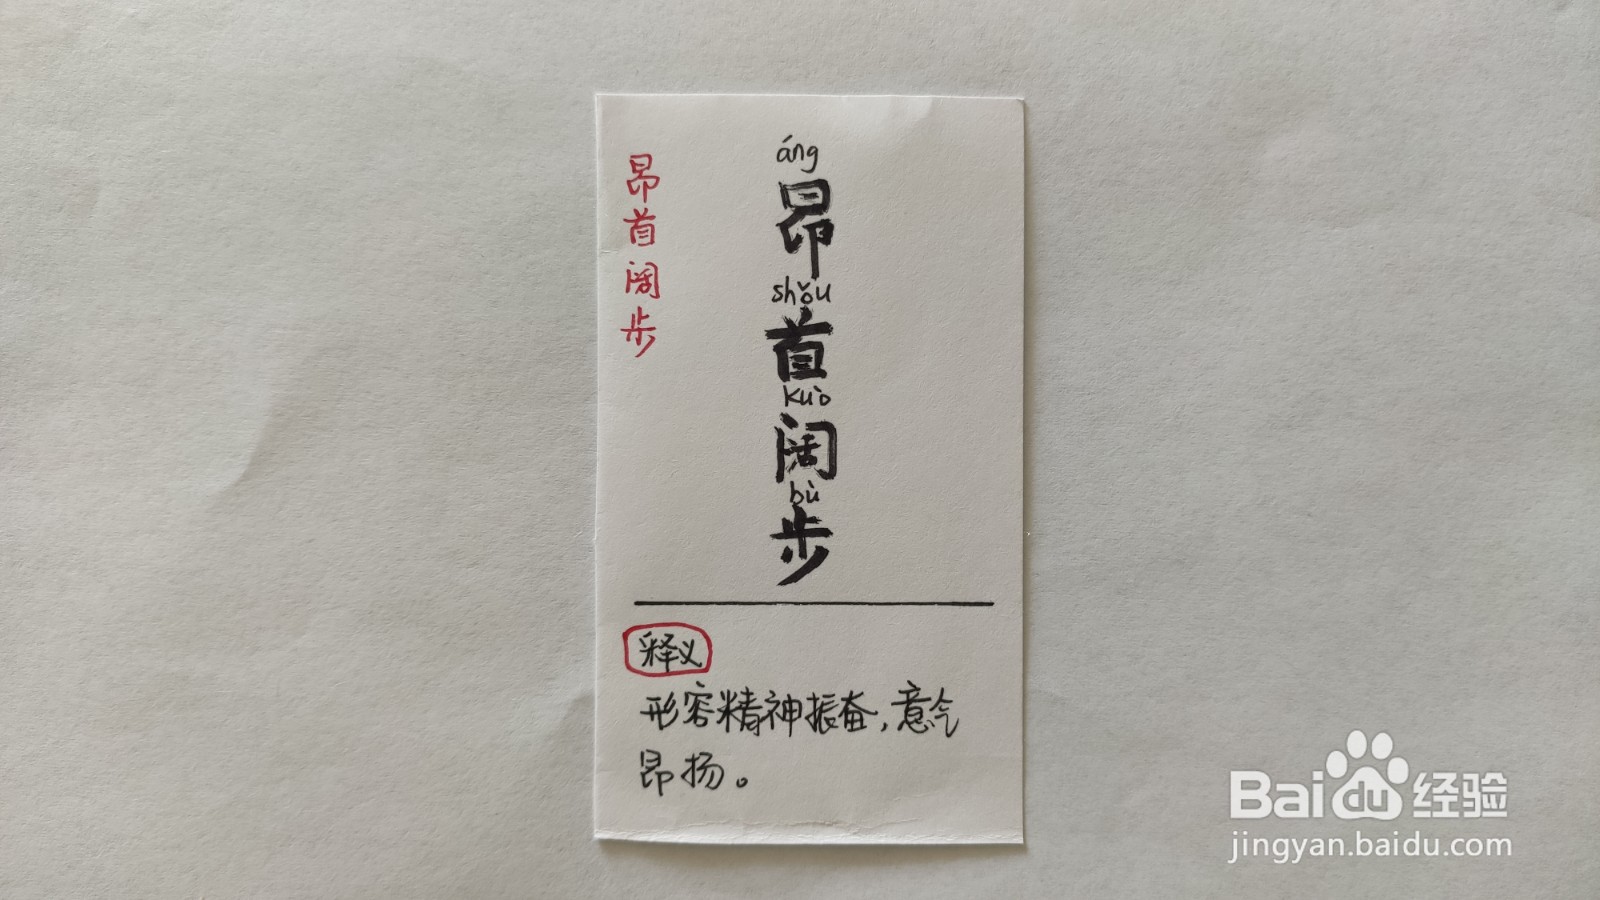 昂首阔步
áng
昂
shǒu
首
kuò
阔
bù
步
释义
形容精神振奋，意气
昂扬。
Baidu经验
jingyan.baidu.com